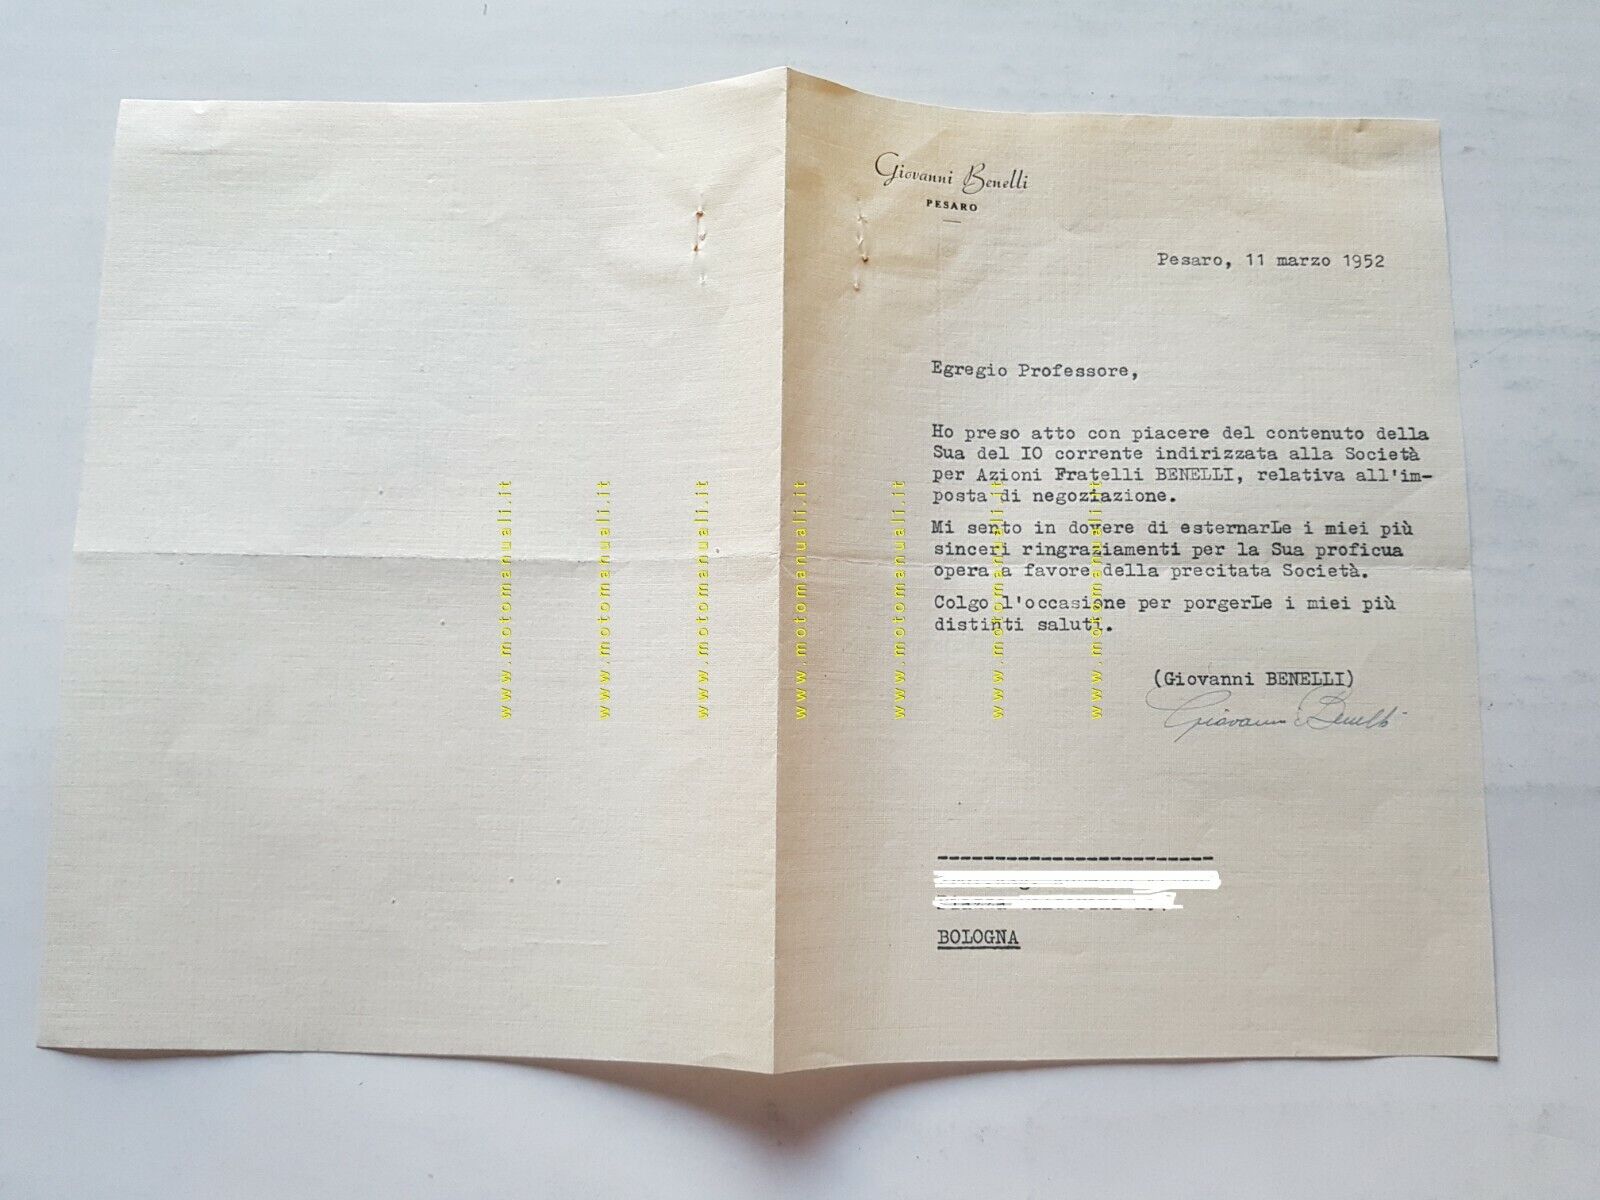 Giovanni Benelli
PESARO
Pesaro, 11 marzo 1952
Egregio Professore,
Ho preso atto con piacere del contenuto della
Sua del IO corrente indirizzata alla Società
per Azioni Fratelli BENELLI, relativa all'im-
posta di negoziazione.
Mi sento in dovere di esternarLe i miei più
sinceri ringraziamenti per la Sua proficua
opera a favore della precitata Società.
Colgo l'occasione per porgerLe i miei più
distinti saluti.
(Giovanni BENELLI)
Giovanni Benelli
BOLOGNA
www.motomanuali.it
www.motomanuali.it
www.motomanuali.it
www.motomanuali.it
www.motomanuali.it
www.motomanuali.it
www.motomanuali.it